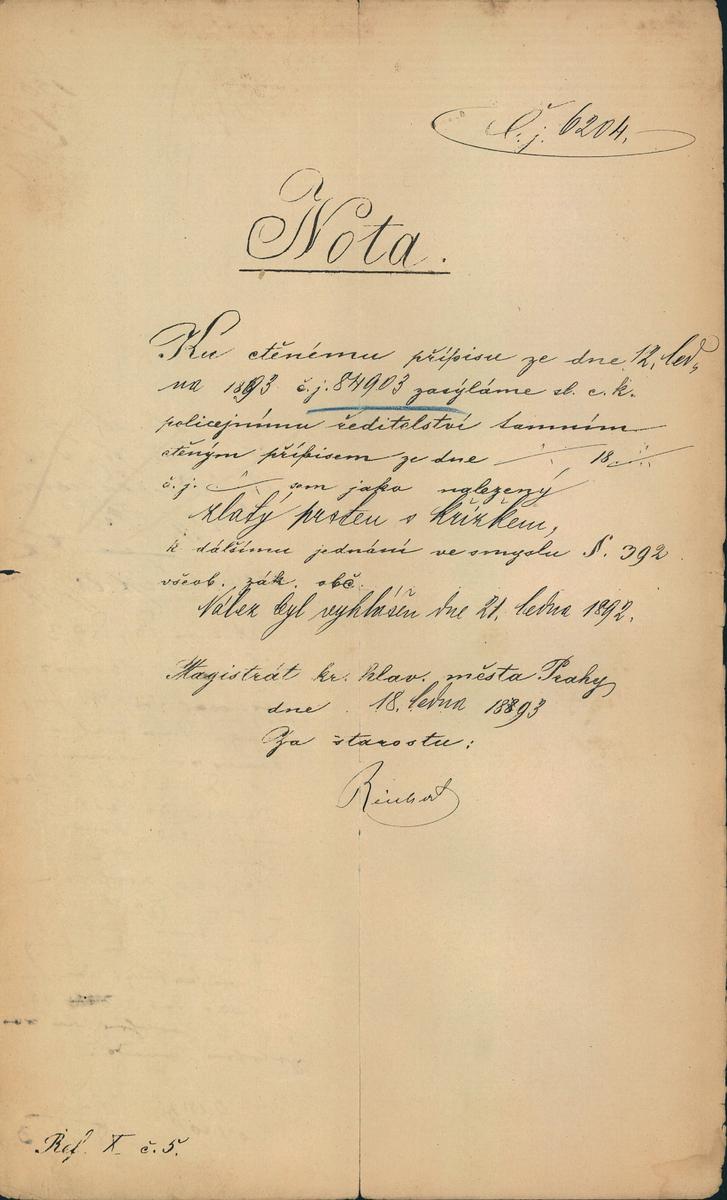 Č. j. 6204.
Nota.
Ku ctěnému přípisu ze dne 12. led„
na 1893 č. j. 84903 zasýláme sl. c. k.
policejnímu ředitelství tamním
ctěným přípisem ze dne 18
č. j. sem jako nalezený
zlatý prsten s křížkem,
k dalšímu jednání ve smyslu §. 392
všeob. zák. obč.
Nález byl vyhlášen dne 21. ledna 1892.
Magistrát kr. hlav. města Prahy
dne 18. ledna 1893
Za starostu:
Ref. X č. 5.